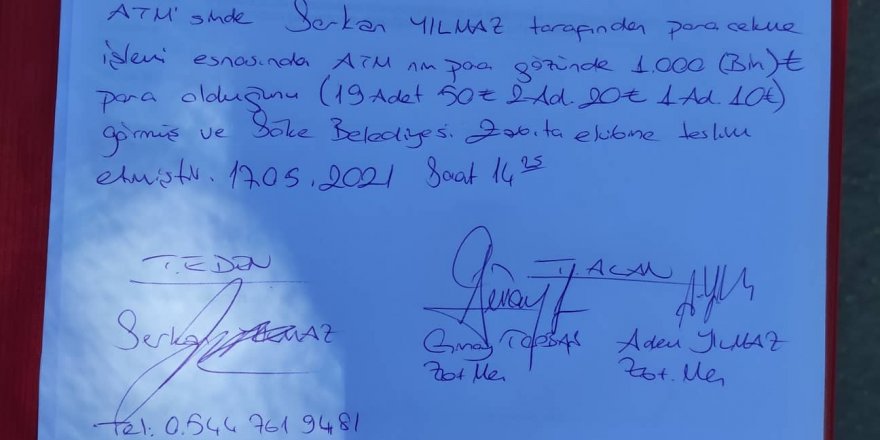 ATM'sinde Serkan YILMAZ tarafından para çekme
işlemi esnasında ATM nın para gözünde 1.000 (Bin) ₺
para olduğunu (19 Adet 50₺ 2 Ad. 20₺ 1 Ad. 10₺)
görmüş ve Söke Belediyesi Zabıta ekibine teslim
etmiştir. 17.05.2021 Saat 14 25
T. EDEN T. ALAN
Serkan YILMAZ Adem YILMAZ
Zab. Me. Zab. Me.
Tel: 0.544 761 9481